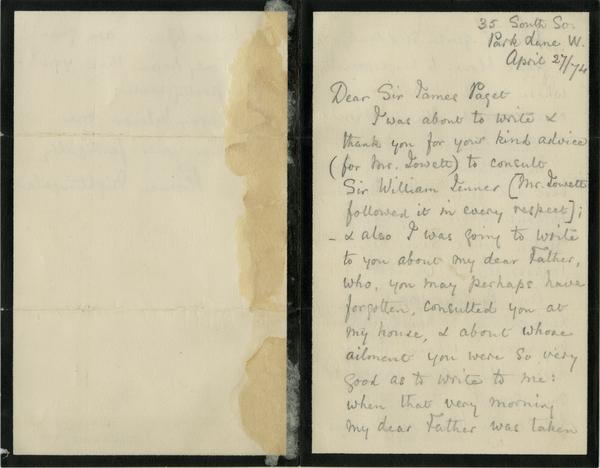 35 South St.
Park Lane W.
April 27/74
Dear Sir James Paget
I was about to write &
thank you for your kind advice
(for Mr. Jowett) to consult
Sir William Jenner [Mr. Jowett
followed it in every respect];
- & also I was going to write
to you about my dear Father,
who, you may perhaps have
forgotten, consulted you at
my house, & about whose
ailment you were so very
good as to write to me:
when that very morning
my dear Father was taken